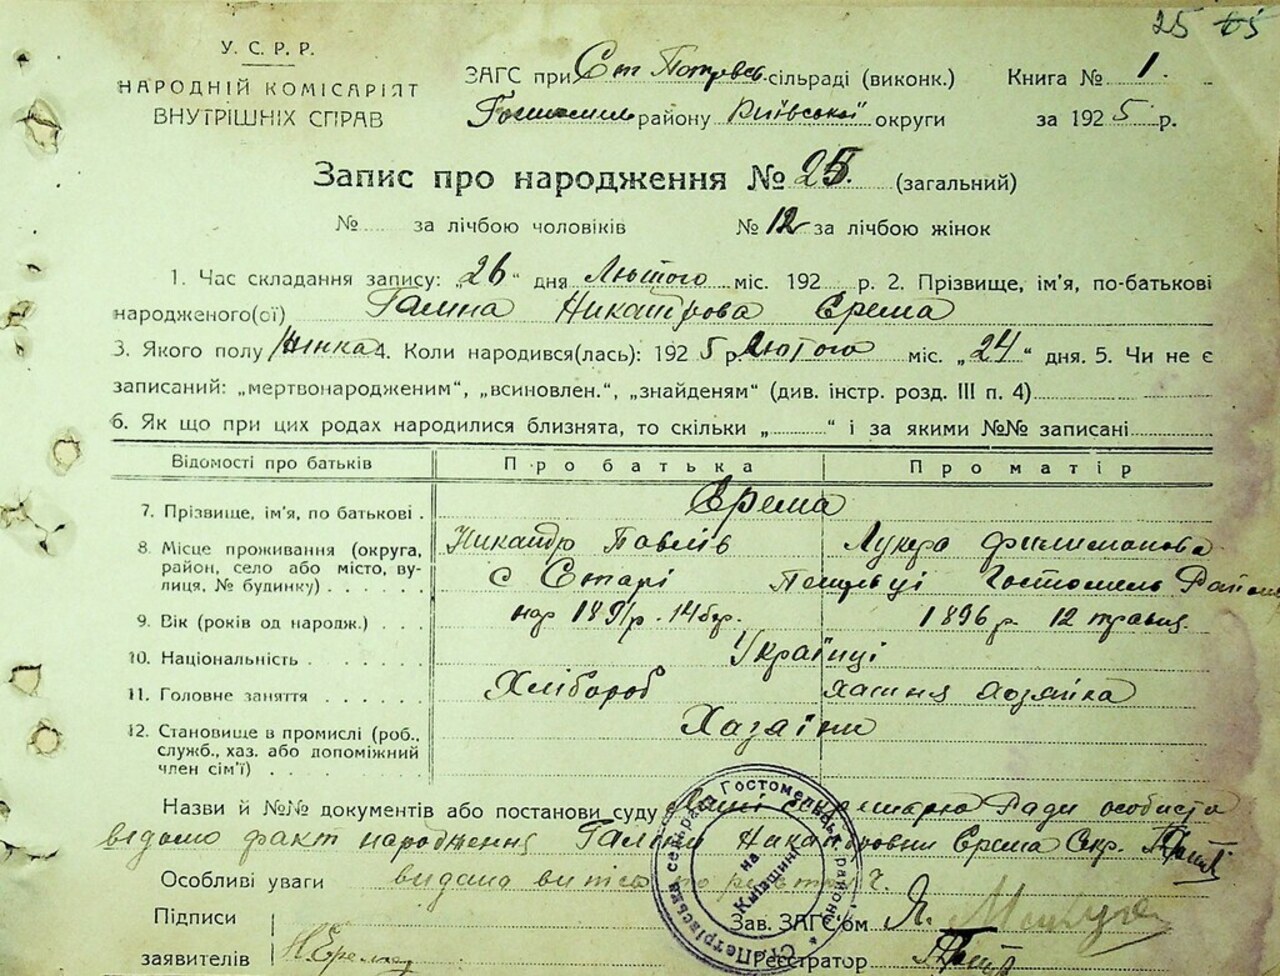 25
У. С. Р. Р.
НАРОДНІЙ КОМІСАРІЯТ
ВНУТРІШНІХ СПРАВ
ЗАГС при Ст Петрівсь. сільраді (виконк.)
Гостомель району Київської округи
Книга № 1.
за 1925 р.
Запис про народження № 25. (загальний)
№ за лічбою чоловіків № 12 за лічбою жінок
1. Час складання запису: „26“ дня Лютого міс. 192 р. 2. Прізвище, ім'я, по-батькові
народженого(ої) Галина Никандрова Ерема
3. Якого полу Жінка 4. Коли народився(лась): 1925 р. Лютого міс. „24“ дня. 5. Чи не є
записаний: „мертвонародженим“, „всиновлен.“, „знайденям“ (див. інстр. розд. III п. 4)
6. Як що при цих родах народилися близнята, то скільки „ “ і за якими №№ записані
Відомості про батьків Про батька Про матір
7. Прізвище, ім'я, по батькові . Ерема
Никандр Павлів Лукера Филимонова
8. Місце проживання (округа, район, село або місто, вулиця, № будинку) с Старі Петрівці Гостомель Район
9. Вік (років од народж.) нар 1891р. 14 1896 р. 12 травня.
10. Національність Українці
11. Головне заняття Хлібороб хатня хозяйка
12. Становище в промислі (роб., служб., хаз. або допоміжний член сім'ї) Хазаіни
Назви й №№ документів або постанови суду Мені секретарю Ради особисто
відомо факт народження Галини Никандровни Ерема Секр.
Особливі уваги видана випись
Підписи
заявителів Н. Ерема
Зав. ЗАГС'ом Я.
Реєстратор
Ст. Петрівська сельрада Гостомельськ. району
на Київщині